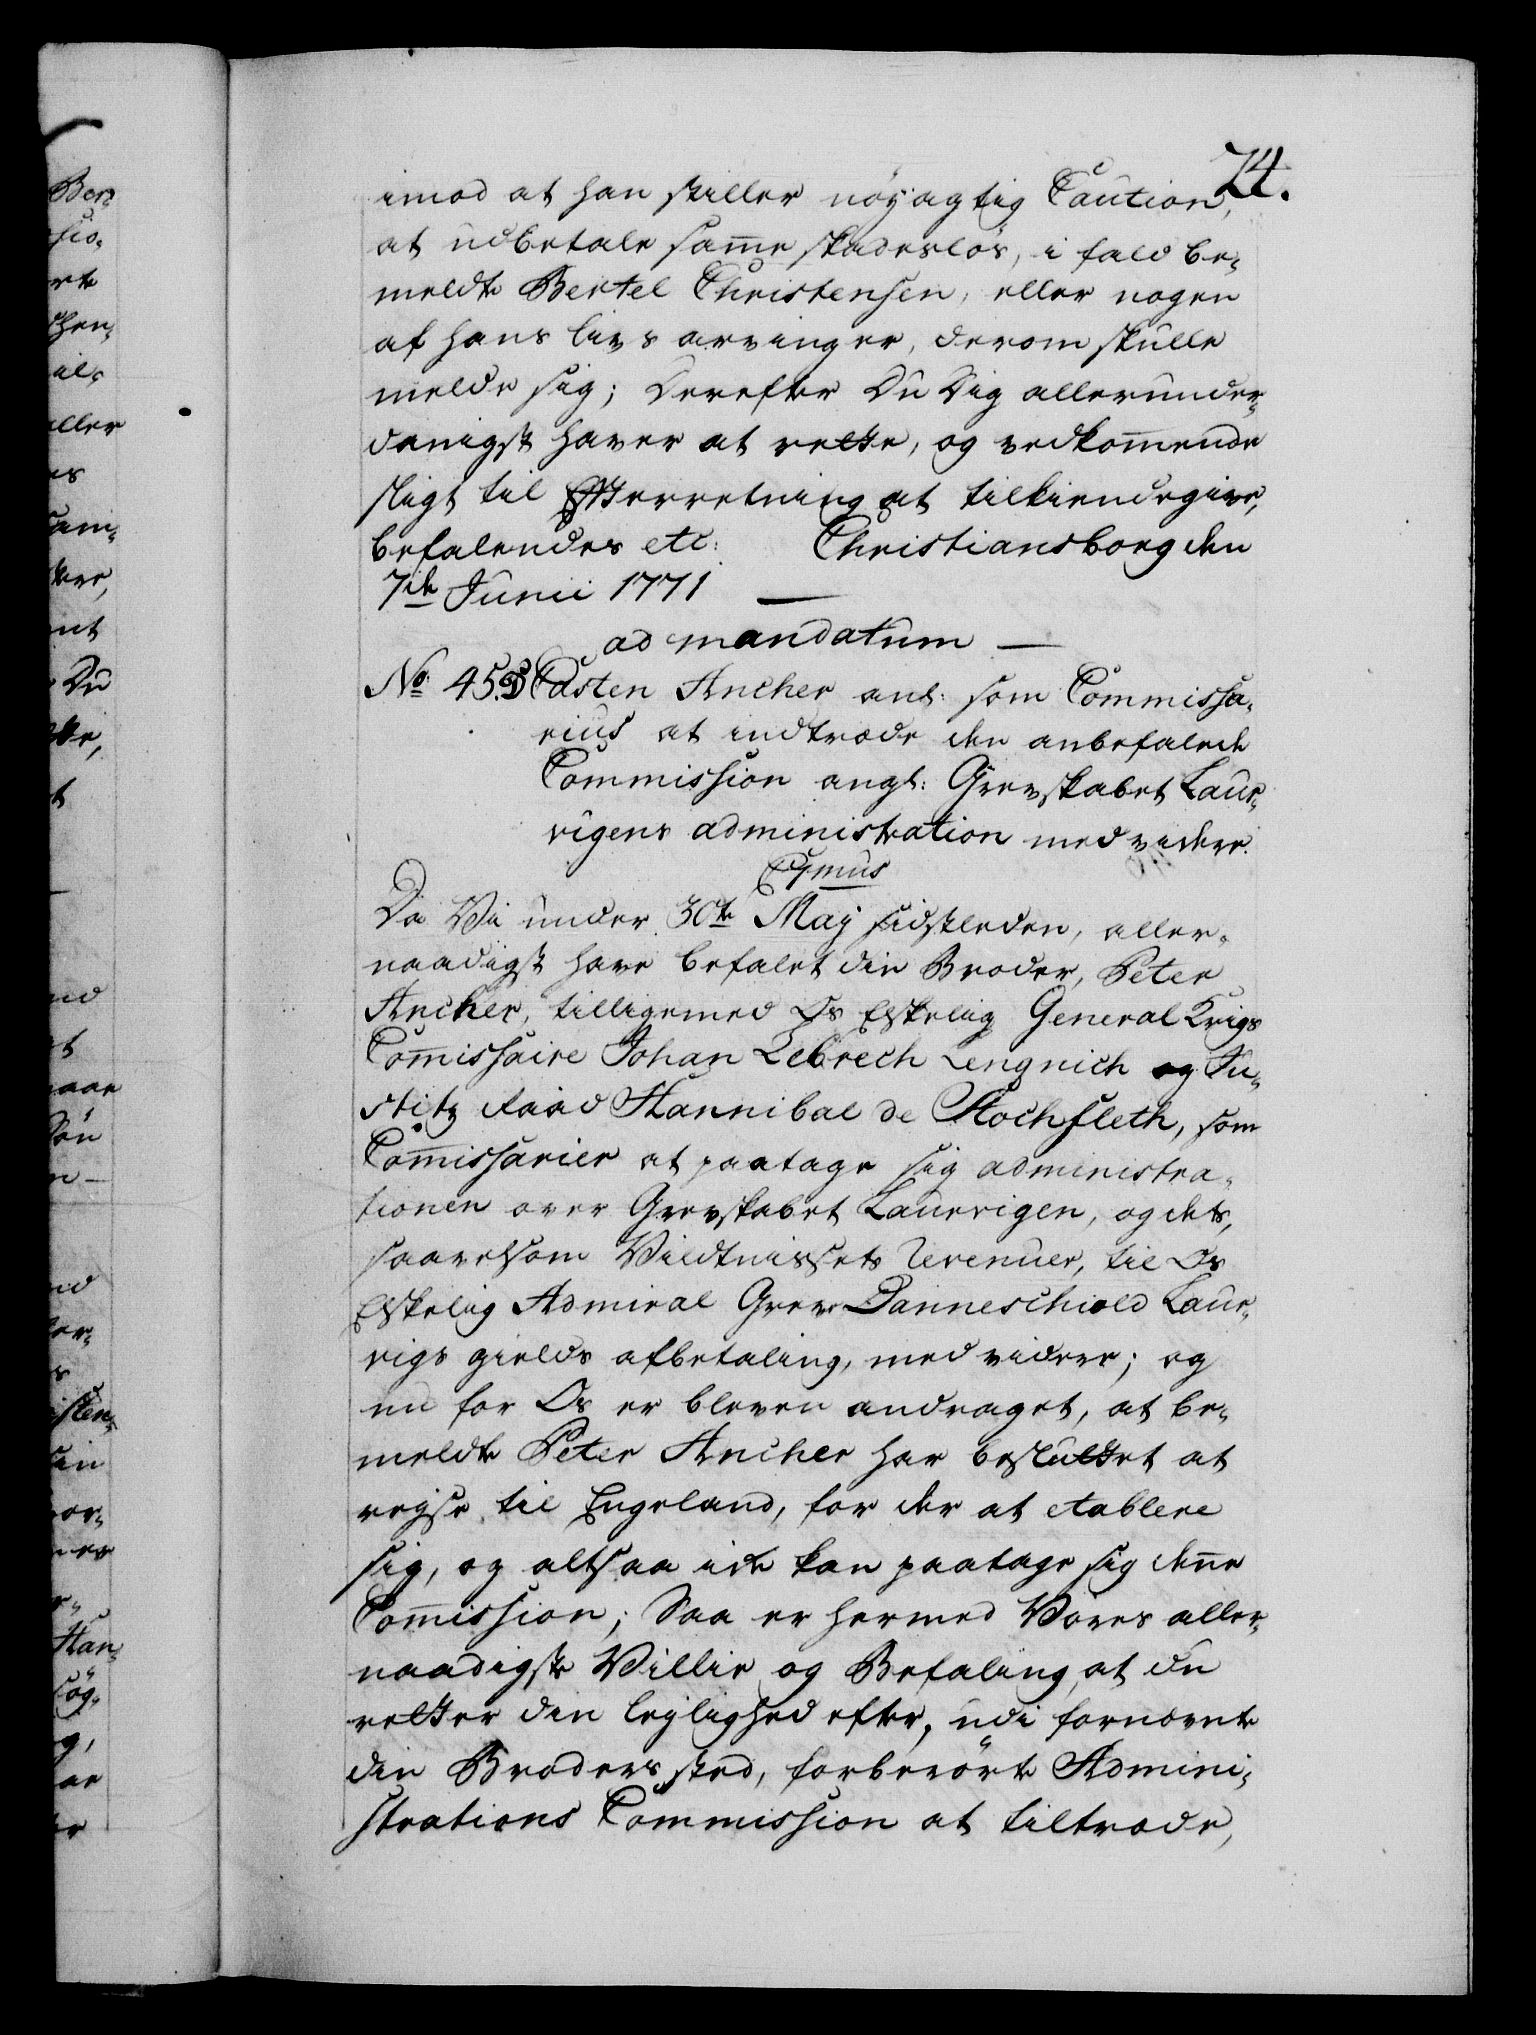 74.
imod at han stiller nöyagtig Caution,
at udbetale sam̅e skadeslös, i fald be„
meldte Bertel Christensen, eller nogen
af hans livs arvinger, derom skulle
melde sig; Derefter Du Dig allerunder„
danigst haver at rette, og vedkom̅ende
sligt til Efterretning at tilkiendegive,
befalendes etc: Christiansborg den
7de Junii 1771 —
ad mandatum —
No 45. Casten Ancher anl: som Commissa„
rius at indtræde den anbefalede
Commission angl: Grevskabet Laur„
vigens administration med videre.
Da Vi under 30te Maj sidstleden, aller„
naadigst have befalet din Broder, Peter
Ancher, tilligemed Os Elskelig General Krigs
Com̅issaire Johan Lebrech Lengnich og Ju„
stitz Raad Hannibal de Stochfleth, som
Com̅issarier at paatage sig administra„
tionen over Grevskabet Laurvigen, og dets,
saavelsom Vildtnissets Revenuer, til Os
Elskelig Admiral Greve Danneschiold Laur„
vigs gields afbetaling, med videre; og
nu for Os er bleven andraget, at be„
meldte Peter Ancher har besluttet at
reyse til Engeland, for der at etablere
sig, og altsaa icke kan paatage sig den̅e
Com̅ission; Saa er hermed Vores aller„
naadigste Villie og Befaling, at du
retter din leylighed efter, udi fornævnte
din Broders sted, forberörte Admini„
strations Commission at tiltræde,